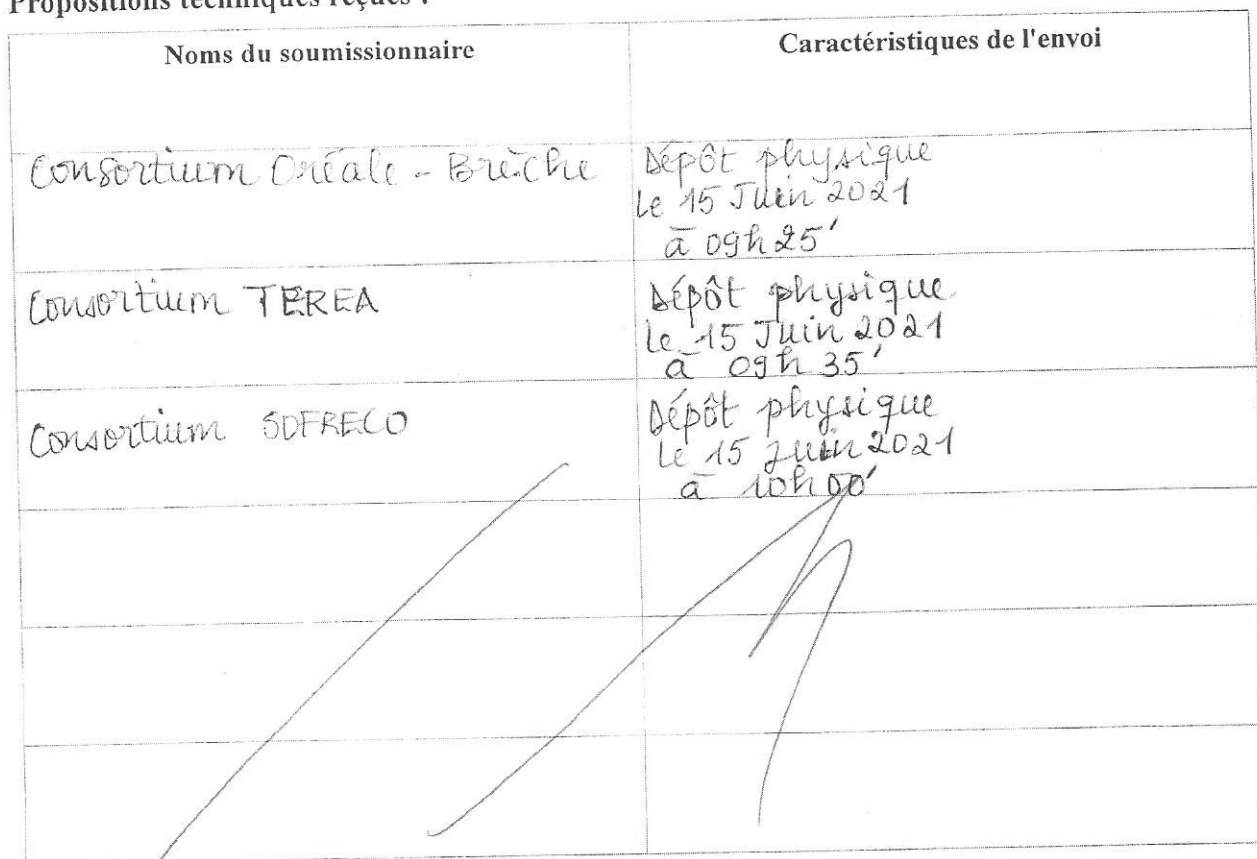 Propositions techniques reçues :
Noms du soumissionnaire
Caractéristiques de l'envoi
Consortium Oréale - Brèche
Dépôt physique
le 15 Juin 2021
à 09h25'
Consortium TEREA
Dépôt physique
le 15 Juin 2021
à 09h 35'
Consortium SOFRECO
Dépôt physique
le 15 Juin 2021
à 10h00'